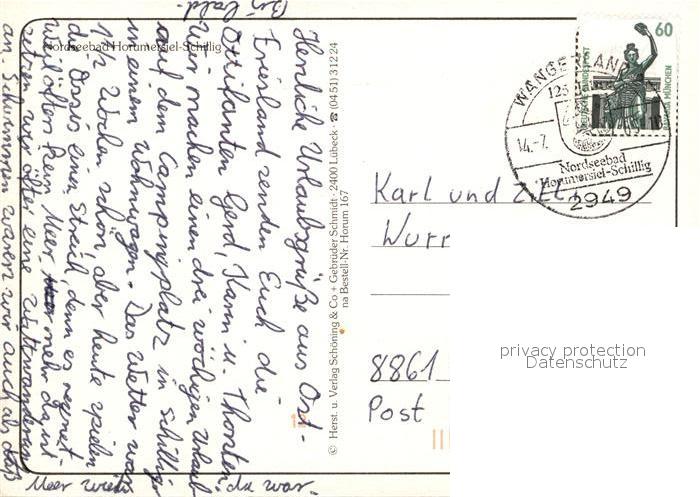 Nordseebad Horumersiel-Schillig
Herzliche Urlaubsgrüße aus Ost-
Friesland senden Euch die
Ottifanten Gerd, Karin u. Thorsten.
Wir machen einen drei wöchigen Urlaub
auf dem Campingplatz in Schillig
in einem Wohnwagen. Das Wetter war
1 1/2 Wochen schön, aber heute spielen
die Ossis einen Streich, denn es regnet.
Weil öfters kein Meer mehr da ist
setzen wir öfter eine Wattwanderung
an. Schwimmen waren wir auch als das
Meer wieder da war.
Bis bald.
© Herst. u. Verlag Schöning & Co + Gebrüder Schmidt · 2400 Lübeck · ☎ (0451) 31224
na Bestell-Nr. Horum 167
60
DEUTSCHE BUNDESPOST
BAVARIA MÜNCHEN
WANGERLAND
14.-7.
Nordseebad
Horumersiel-Schillig
2949
Karl und
Wurr
8861
Post
privacy protection
Datenschutz